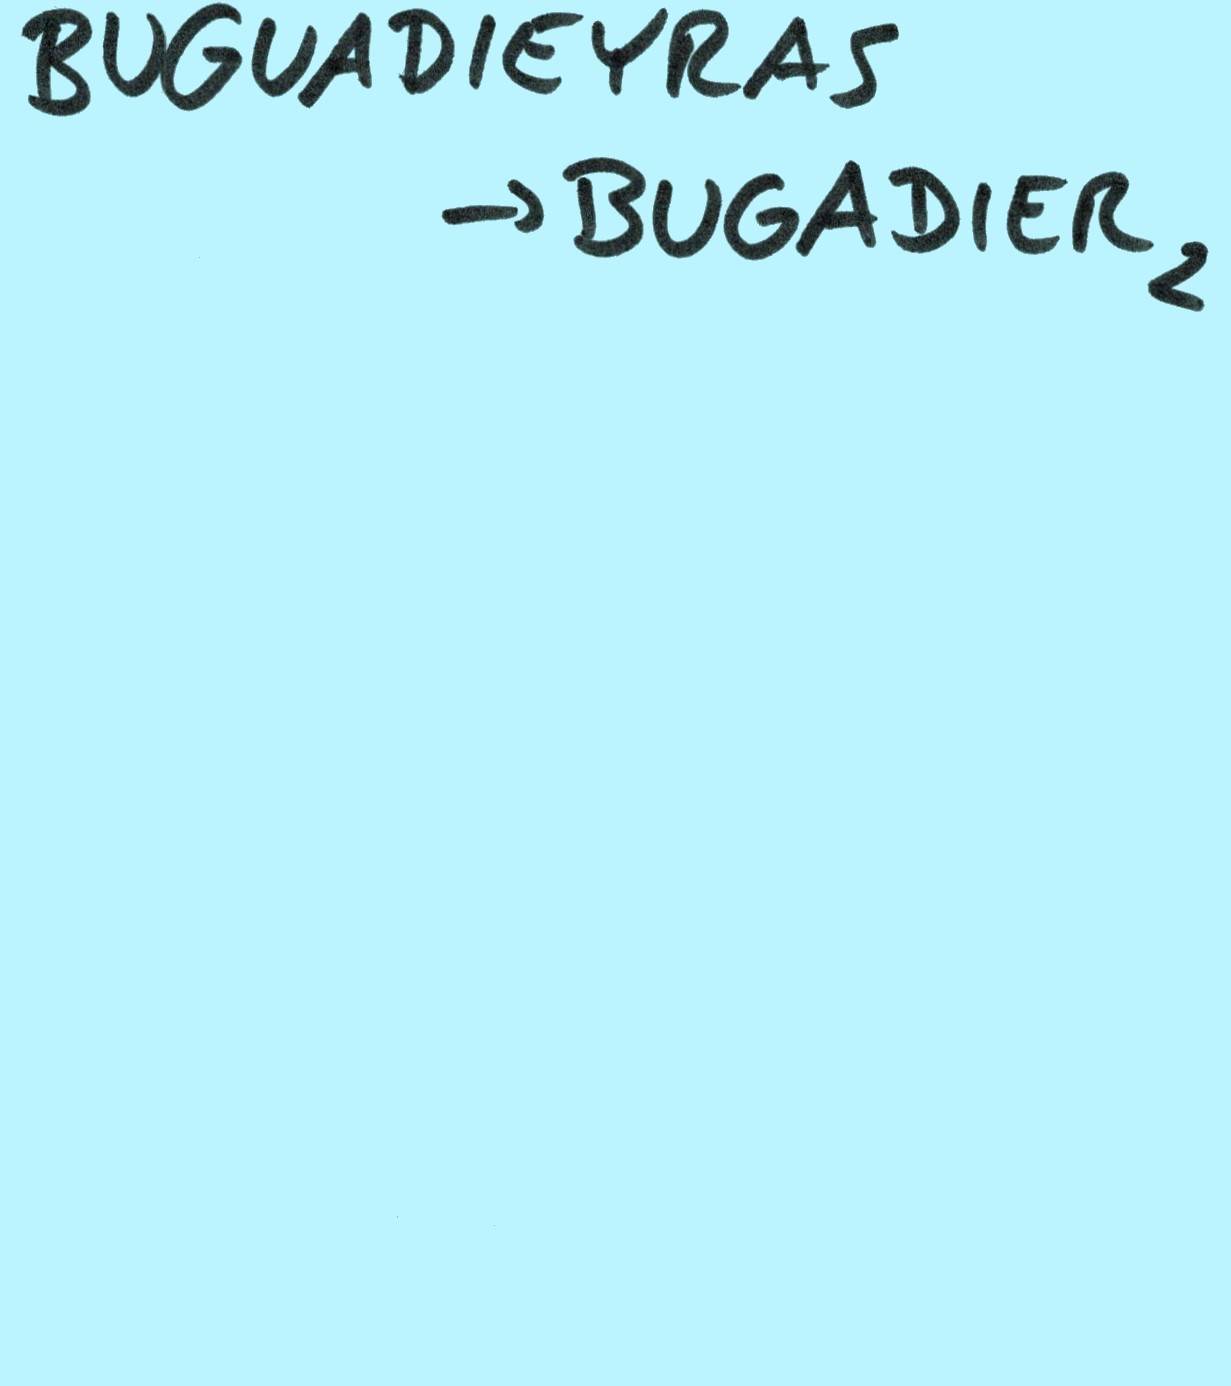 BUGUADIEYRAS
→ BUGADIER₂